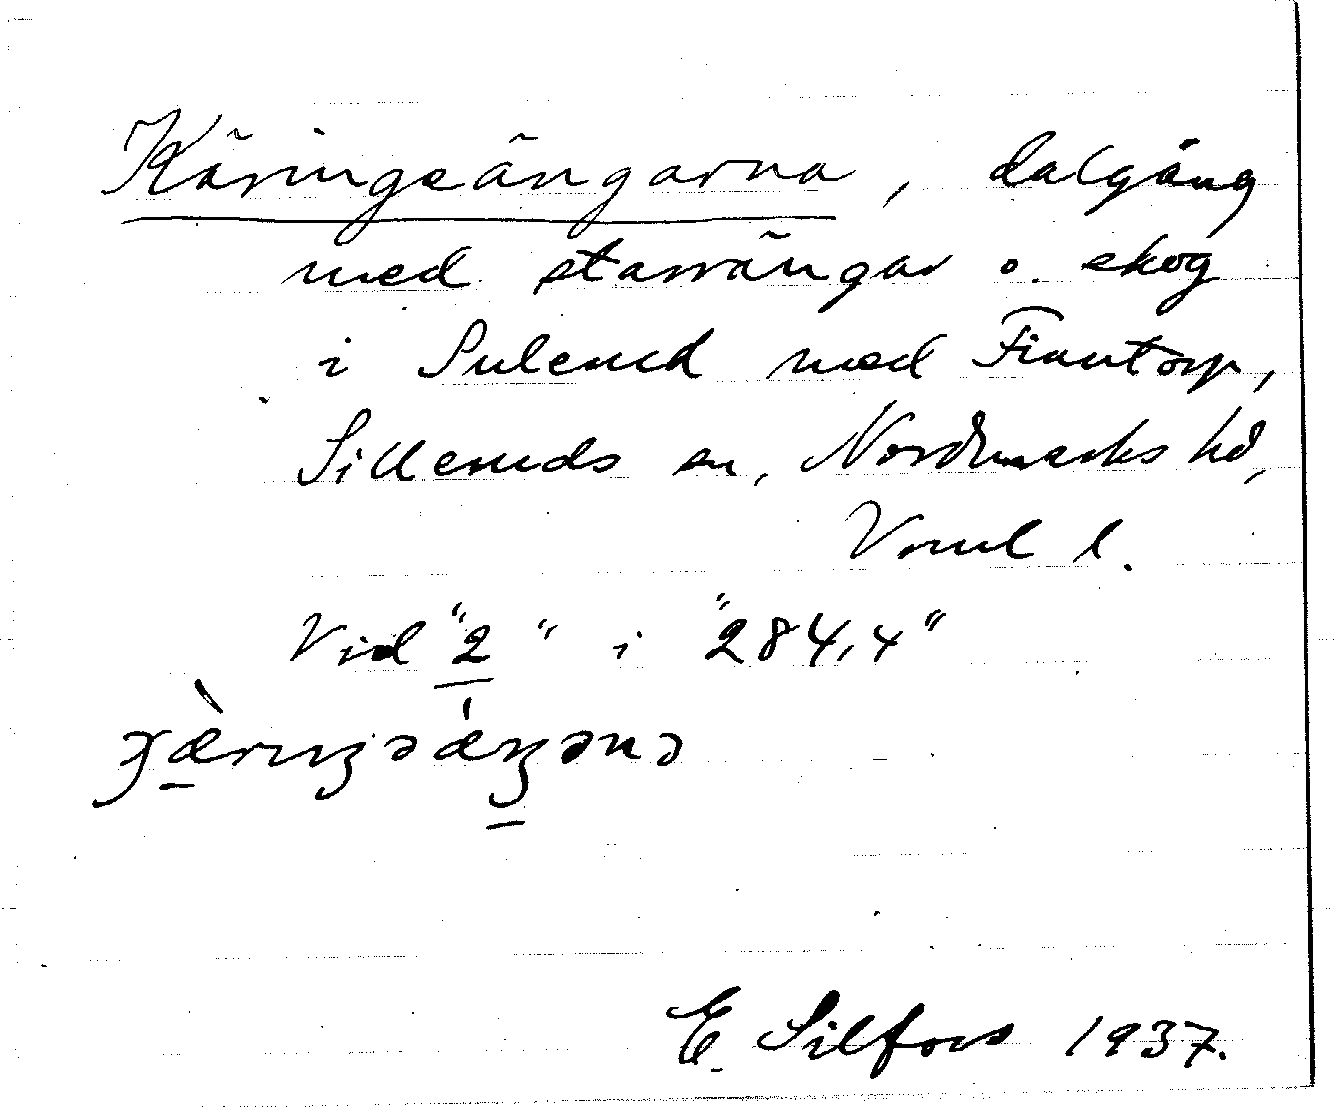 Käringeängarna, dalgång
med starrängar o. skog
i Sulerud med Finntorp,
Silleruds sn, Nordmarks hd,
Vrml l.
Vid "2" i "284,4"
E. Silfors 1937.